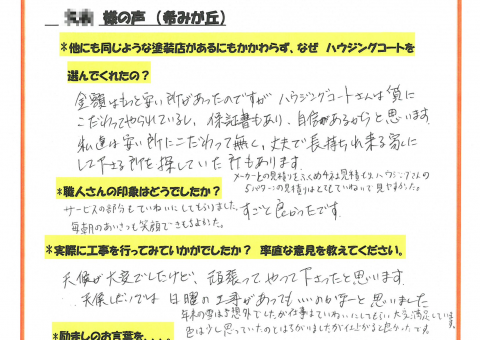 様の声 (希みが丘)
*他にも同じような塗装店があるにもかかわらず、なぜ ハウジングコートを
選んでくれたの?
金額はもっと安い所があったのですが ハウジングコートさんは質に
こだわってやられているし、保証書もあり、自信があるからと思います。
私達は安い所にこだわって無し、丈夫で長持ち出来る家に
して下さる所を探していた所もあります。
メーカーとの見積りをふくめ
見積りはとてもていねいで見やすかった。
*職人さんの印象はどうでしたか?
サービスの部分もていねいにしてもらいました。すごく良かったです。
毎朝のあいさつも笑顔できもちよかった。
*実際に工事を行ってみていかがでしたか? 率直な意見を教えてください。
天候が大変でしたけど、頑張ってやって下さったと思います。
天候しだいでは日曜の工事があってもいいのかなーと思いました
年末の雪は予想外でしたが仕事はていねいにしてもらい大変満足しています。
色は少し思っていたのとはちがいましたが仕上がると良かったです。
*励ましのお言葉を、、、、